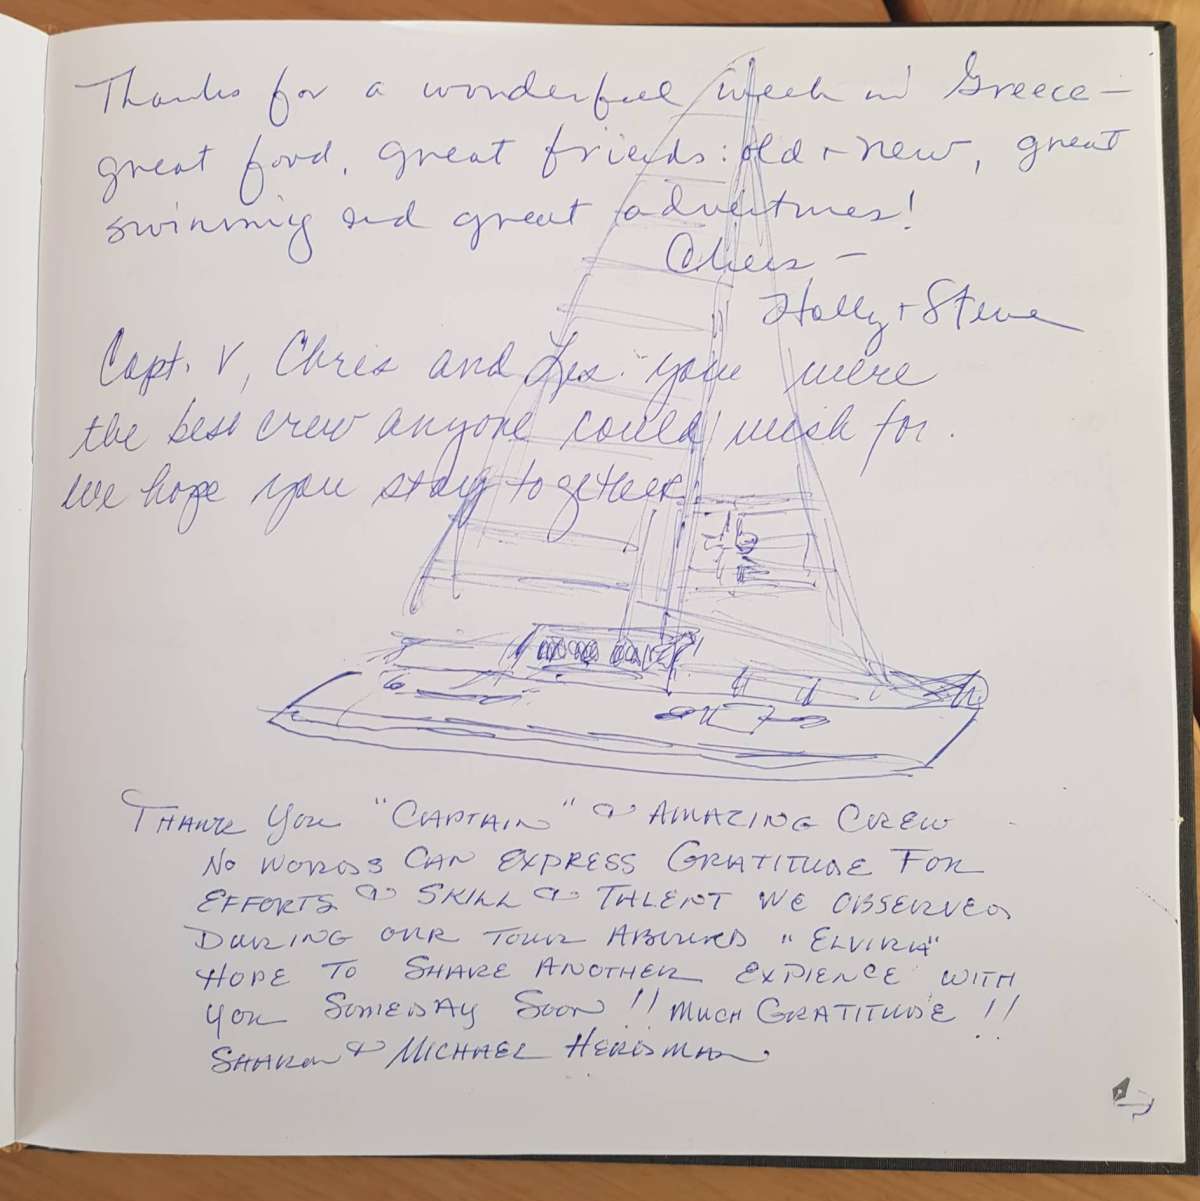 Thanks for a wonderful week in Greece –
great food, great friends: old + new, great
swimming and great adventures!
Cheers –
Holly + Steve
Capt. V, Chris and you were
the best crew anyone could wish for.
We hope you stay together.
THANK YOU "CAPTAIN" & AMAZING CREW
NO WORDS CAN EXPRESS GRATITUDE FOR
EFFORTS & SKILL & TALENT WE OBSERVED
DURING OUR TOUR ABOARD "ELVIRA"
HOPE TO SHARE ANOTHER EXPIENCE WITH
YOU SOMEDAY SOON !! MUCH GRATITUDE !!
SHARON & MICHAEL HERDSMAN